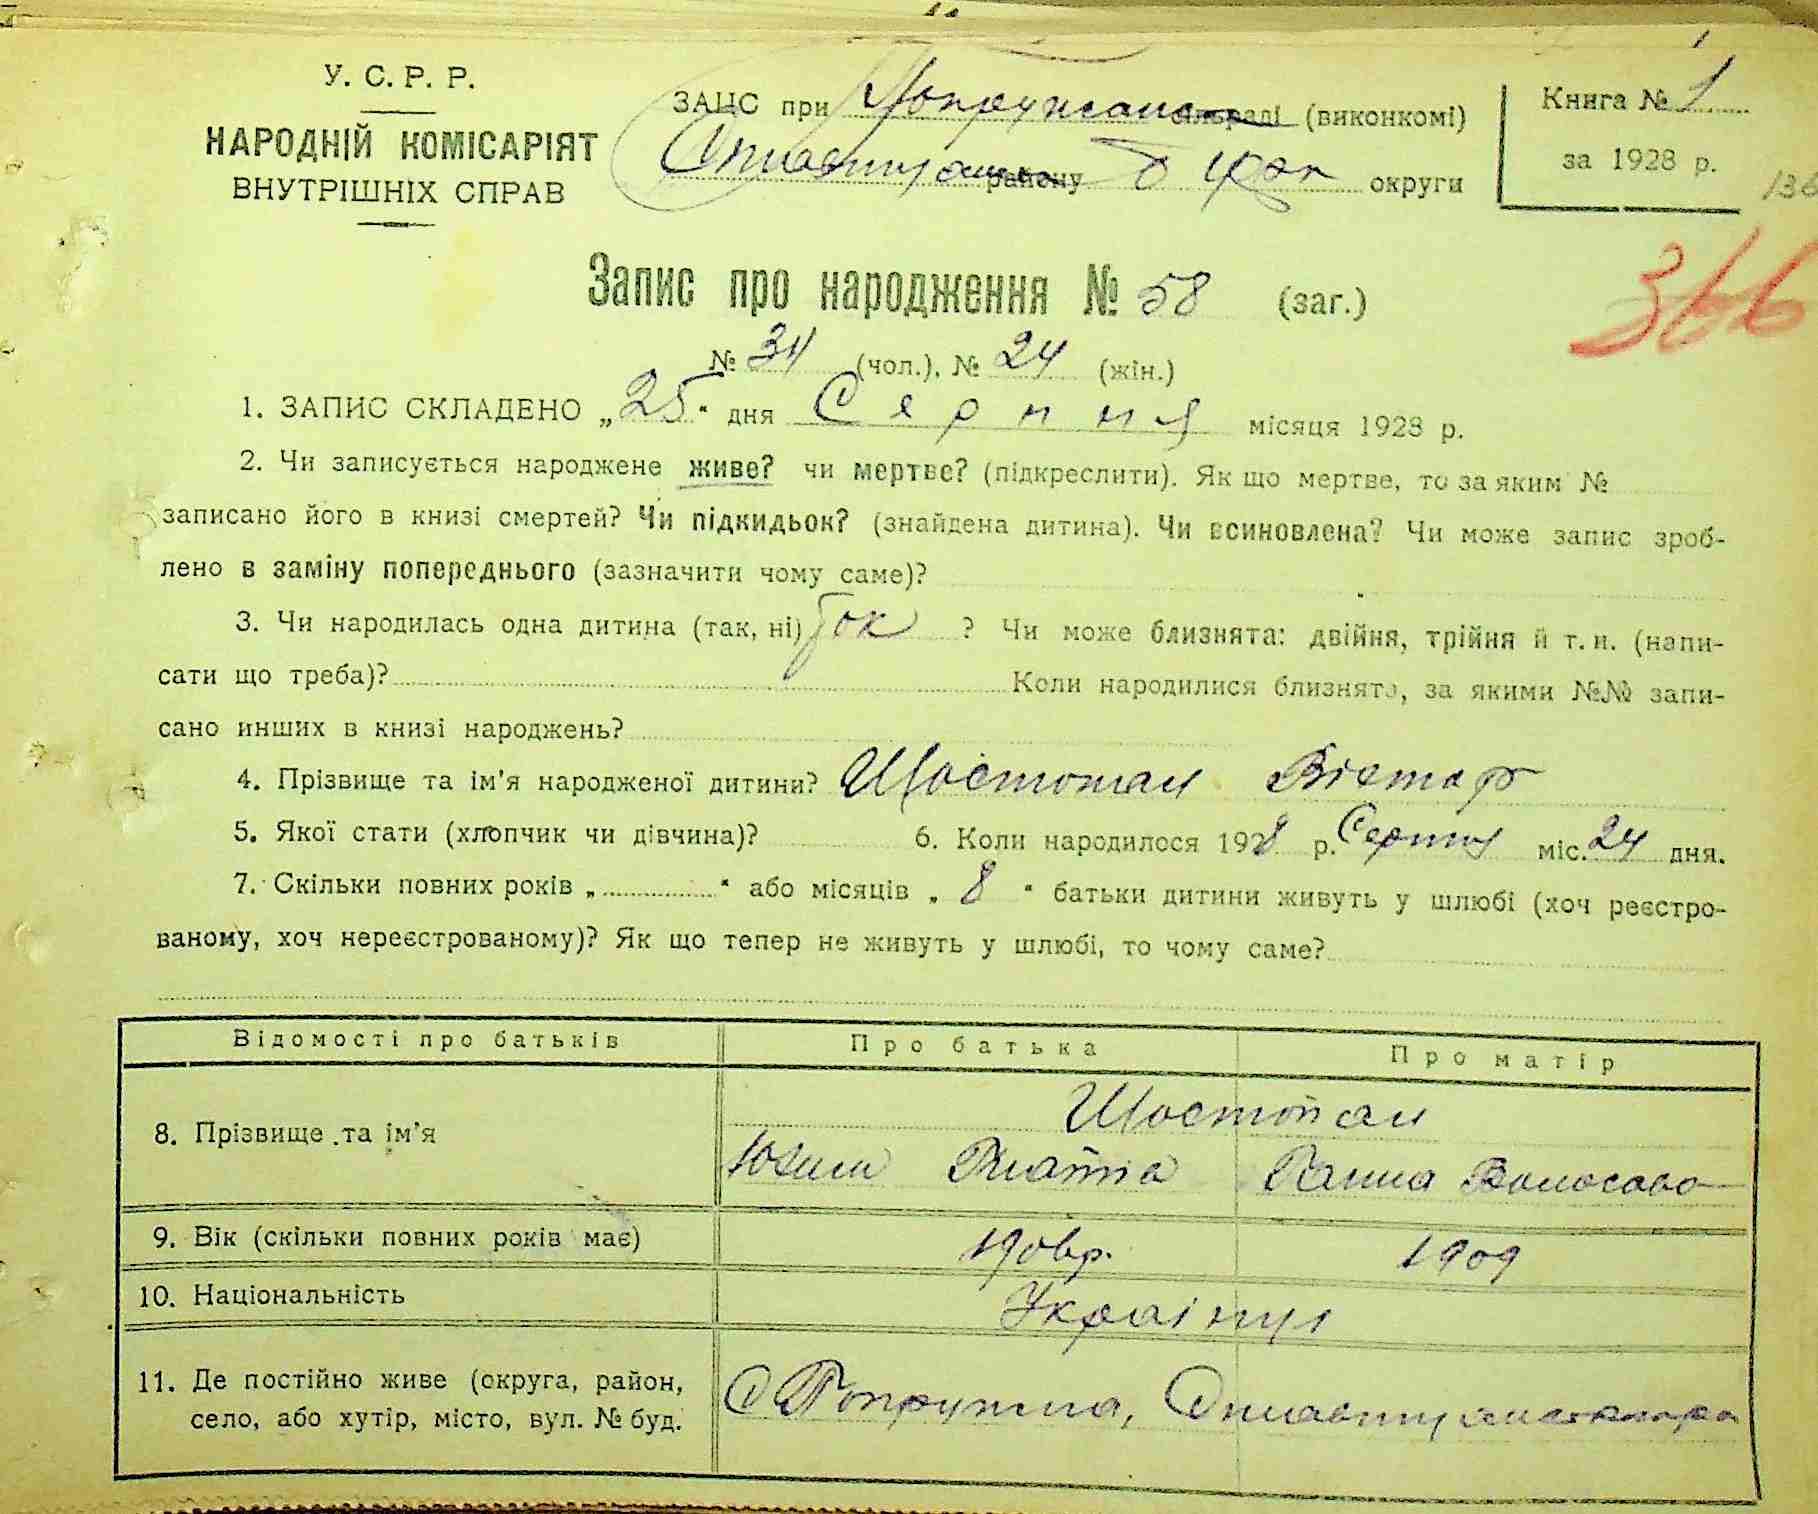 У. С. Р. Р.
НАРОДНІЙ КОМІСАРІЯТ
ВНУТРІШНІХ СПРАВ
ЗАЦС при сільраді (виконкомі)
району округи
Книга № 1
за 1928 р.
136
366
Запис про народження № 58 (заг.)
№ 34 (чол.), № 24 (жін.)
1. ЗАПИС СКЛАДЕНО „25“ дня Серпня місяця 1928 р.
2. Чи записується народжене живе? чи мертве? (підкреслити). Як що мертве, то за яким №
записано його в книзі смертей? Чи підкидьок? (знайдена дитина). Чи всиновлена? Чи може запис зроб-
лено в заміну попереднього (зазначити чому саме)?
3. Чи народилась одна дитина (так, ні) так ? Чи може близнята: двійня, трійня й т. и. (напи-
сати що треба)? Коли народилися близнята, за якими №№ запи-
сано инших в книзі народжень?
4. Прізвище та ім'я народженої дитини? Шостопал Віктор
5. Якої стати (хлопчик чи дівчина)? 6. Коли народилося 1928 р. Серпня міс. 24 дня.
7. Скільки повних років „ “ або місяців „ 8 “ батьки дитини живуть у шлюбі (хоч реєстро-
ваному, хоч нереєстрованому)? Як що тепер не живуть у шлюбі, то чому саме?
Відомості про батьків Про батька Про матір
8. Прізвище та ім'я Шостопал
Ганна
9. Вік (скільки повних років має) 1906р. 1909
10. Національність Українці
11. Де постійно живе (округа, район,
село, або хутір, місто, вул. № буд.